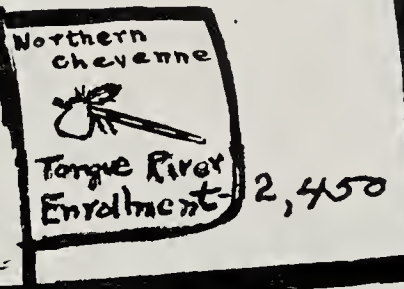 Northern
Cheyenne
Tongue River
Enrollment-2,450